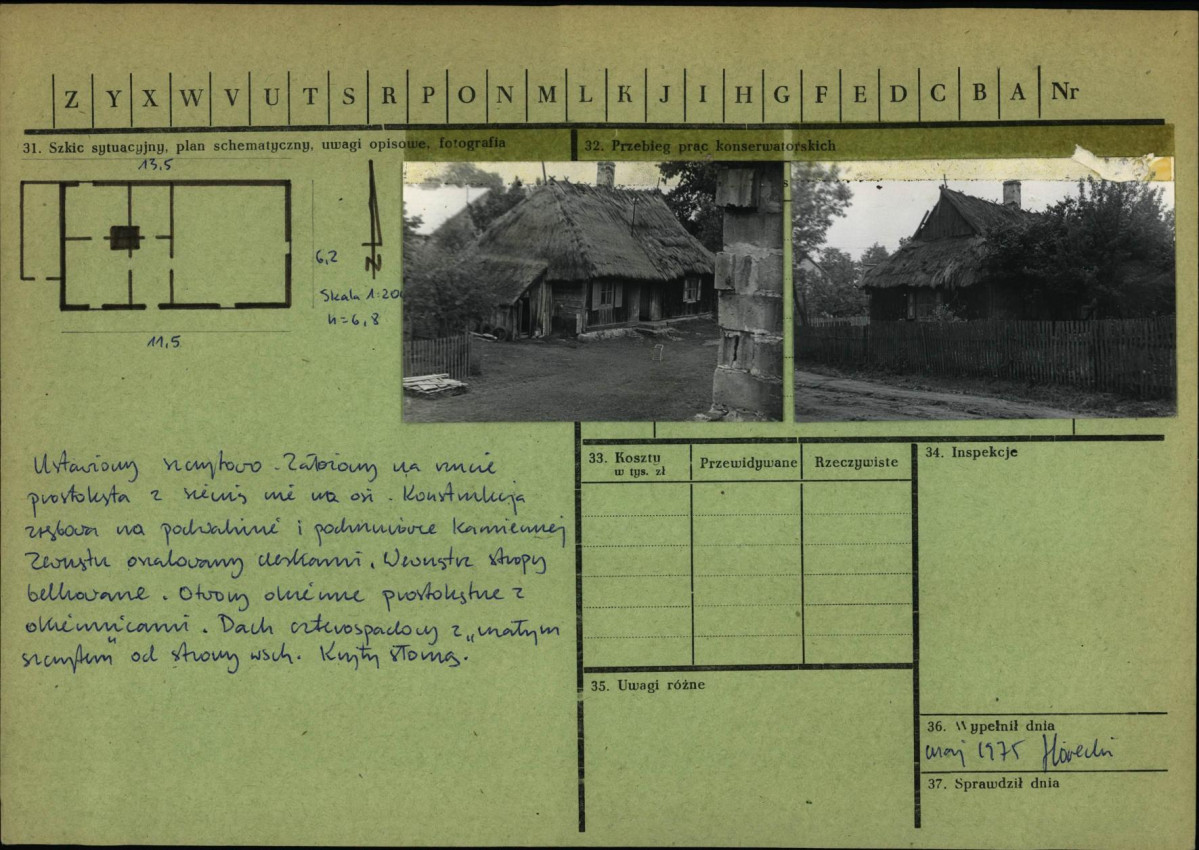 Z Y X W V U T S R P O N M L K J I H G F E D C B A Nr
31. Szkic sytuacyjny, plan schematyczny, uwagi opisowe, fotografia
32. Przebieg prac konserwatorskich
13,5
6,2
N
Skala 1:200
h=6,8
11,5
Ustawiony szczytowo. Założony na rzucie
prostokąta z sienią nie na osi. Konstrukcja
zrębowa na podwalinie i podmurówce kamiennej
Zewnątrz oszalowany deskami. Wewnątrz stropy
belkowane. Otwory okienne prostokątne z
okiennicami. Dach czterospadowy z „małym
szczytem" od strony wsch. Kryty słomą.
33. Koszty
w tys. zł
Przewidywane
Rzeczywiste
34. Inspekcje
35. Uwagi różne
36. Wypełnił dnia
maj 1975
37. Sprawdził dnia